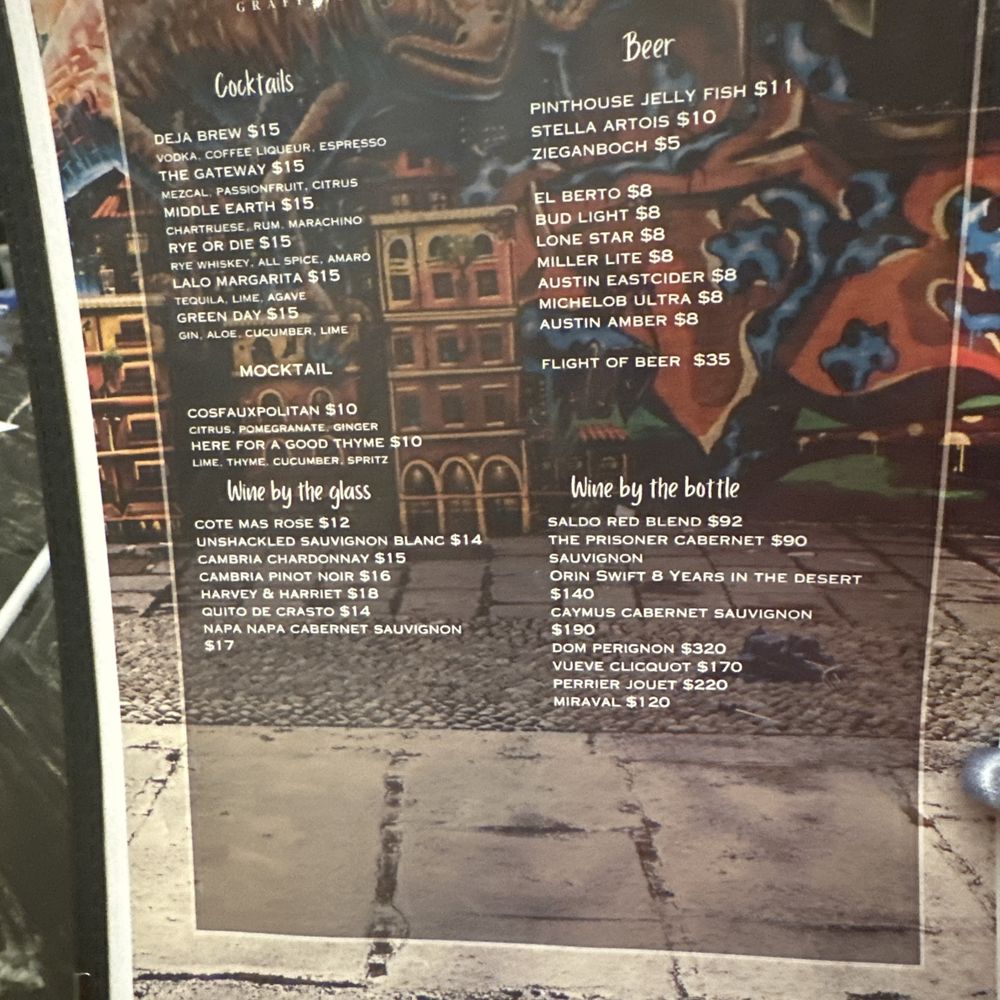 Cocktails
DEJA BREW $15
VODKA, COFFEE LIQUEUR, ESPRESSO
THE GATEWAY $15
MEZCAL, PASSIONFRUIT, CITRUS
MIDDLE EARTH $15
CHARTRUESE, RUM, MARACHINO
RYE OR DIE $15
RYE WHISKEY, ALL SPICE, AMARO
LALO MARGARITA $15
TEQUILA, LIME, AGAVE
GREEN DAY $15
GIN, ALOE, CUCUMBER, LIME
MOCKTAIL
COSFAUXPOLITAN $10
CITRUS, POMEGRANATE, GINGER
HERE FOR A GOOD THYME $10
LIME, THYME, CUCUMBER, SPRITZ
Wine by the glass
COTE MAS ROSE $12
UNSHACKLED SAUVIGNON BLANC $14
CAMBRIA CHARDONNAY $15
CAMBRIA PINOT NOIR $16
HARVEY & HARRIET $18
QUITO DE CRASTO $14
NAPA NAPA CABERNET SAUVIGNON
$17
Beer
PINTHOUSE JELLY FISH $11
STELLA ARTOIS $10
ZIEGANBOCH $5
EL BERTO $8
BUD LIGHT $8
LONE STAR $8
MILLER LITE $8
AUSTIN EASTCIDER $8
MICHELOB ULTRA $8
AUSTIN AMBER $8
FLIGHT OF BEER $35
Wine by the bottle
SALDO RED BLEND $92
THE PRISONER CABERNET $90
SAUVIGNON
ORIN SWIFT 8 YEARS IN THE DESERT
$140
CAYMUS CABERNET SAUVIGNON
$190
DOM PERIGNON $320
VUEVE CLICQUOT $170
PERRIER JOUET $220
MIRAVAL $120